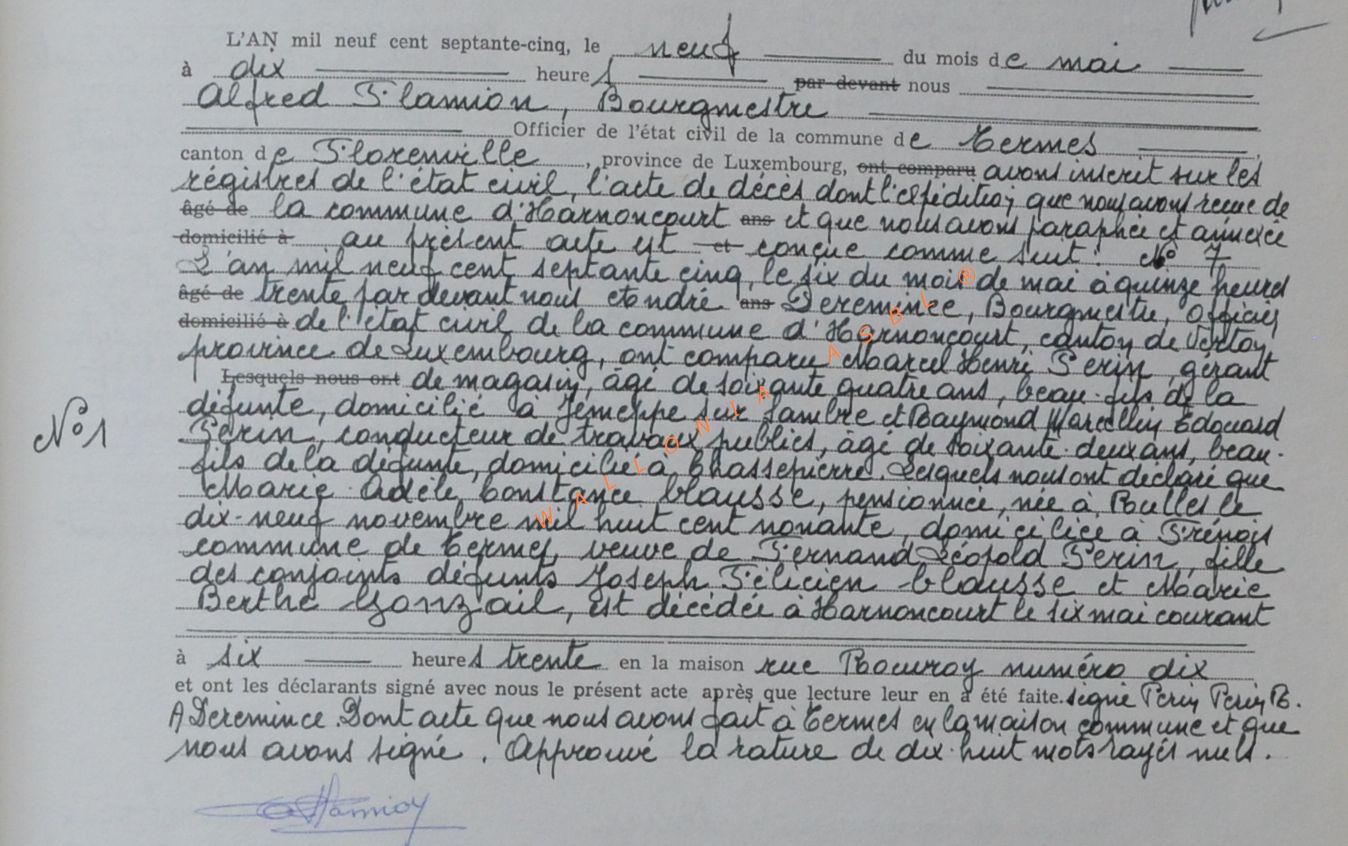 L'AN mil neuf cent septante-cinq, le neuf du mois de mai
à dix heures par devant nous
Alfred Flamion, Bourgmestre
Officier de l'état civil de la commune de Termes
canton de Florenville, province de Luxembourg, ont comparu avons inscrit sur les
régistres de l'état civil, l'acte de décès dont l'expédition que nous avons reçue de
âgé de la commune d'Harnoncourt ans et que nous avons paraphée et annexée
domicilié à au présent acte est et conçue comme suit : N° 7
L'an mil neuf cent septante cinq, le six du mois de mai à quinze heures
âgé de trente par devant nous André ans Deremince, Bourgmestre, officier
domicilié à de l'état civil de la commune d'Harnoncourt, canton de Virton,
province de Luxembourg, ont comparu Marcel Henri Perin, gérant
Lesquels nous ont de magasin, âgé de soixante quatre ans, beau-fils de la
N° 1
défunte, domicilié à Jemeppe sur Sambre et Raymond Marcellin Edouard
Perin, conducteur de travaux publics, âgé de soixante-deux ans, beau-
fils de la défunte, domicilié à Chassepierre. Lesquels nous ont déclaré que
Marie Adèle Constance Clausse, pensionnée, née à
dix-neuf novembre mil huit cent nonante, domiciliée à Frénois
commune de Termes, veuve de Fernand Léopold Perin, fille
des conjoints défunts Joseph Félicien Clausse et Marie
Berthe, est décédée à Harnoncourt le six mai courant
à six heures trente en la maison rue numéro dix
et ont les déclarants signé avec nous le présent acte après que lecture leur en a été faite. signé Perin, Perin R.
A Deremince. Dont acte que nous avons fait à Termes en la maison commune et que
nous avons signé. Approuvé la rature de dix-huit mots rayés nuls.
WALLONIA ASBL